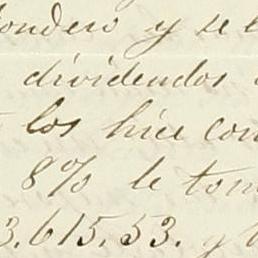 ondero y se l
dividendos
los hice con
8% le tom
3.615.53. y